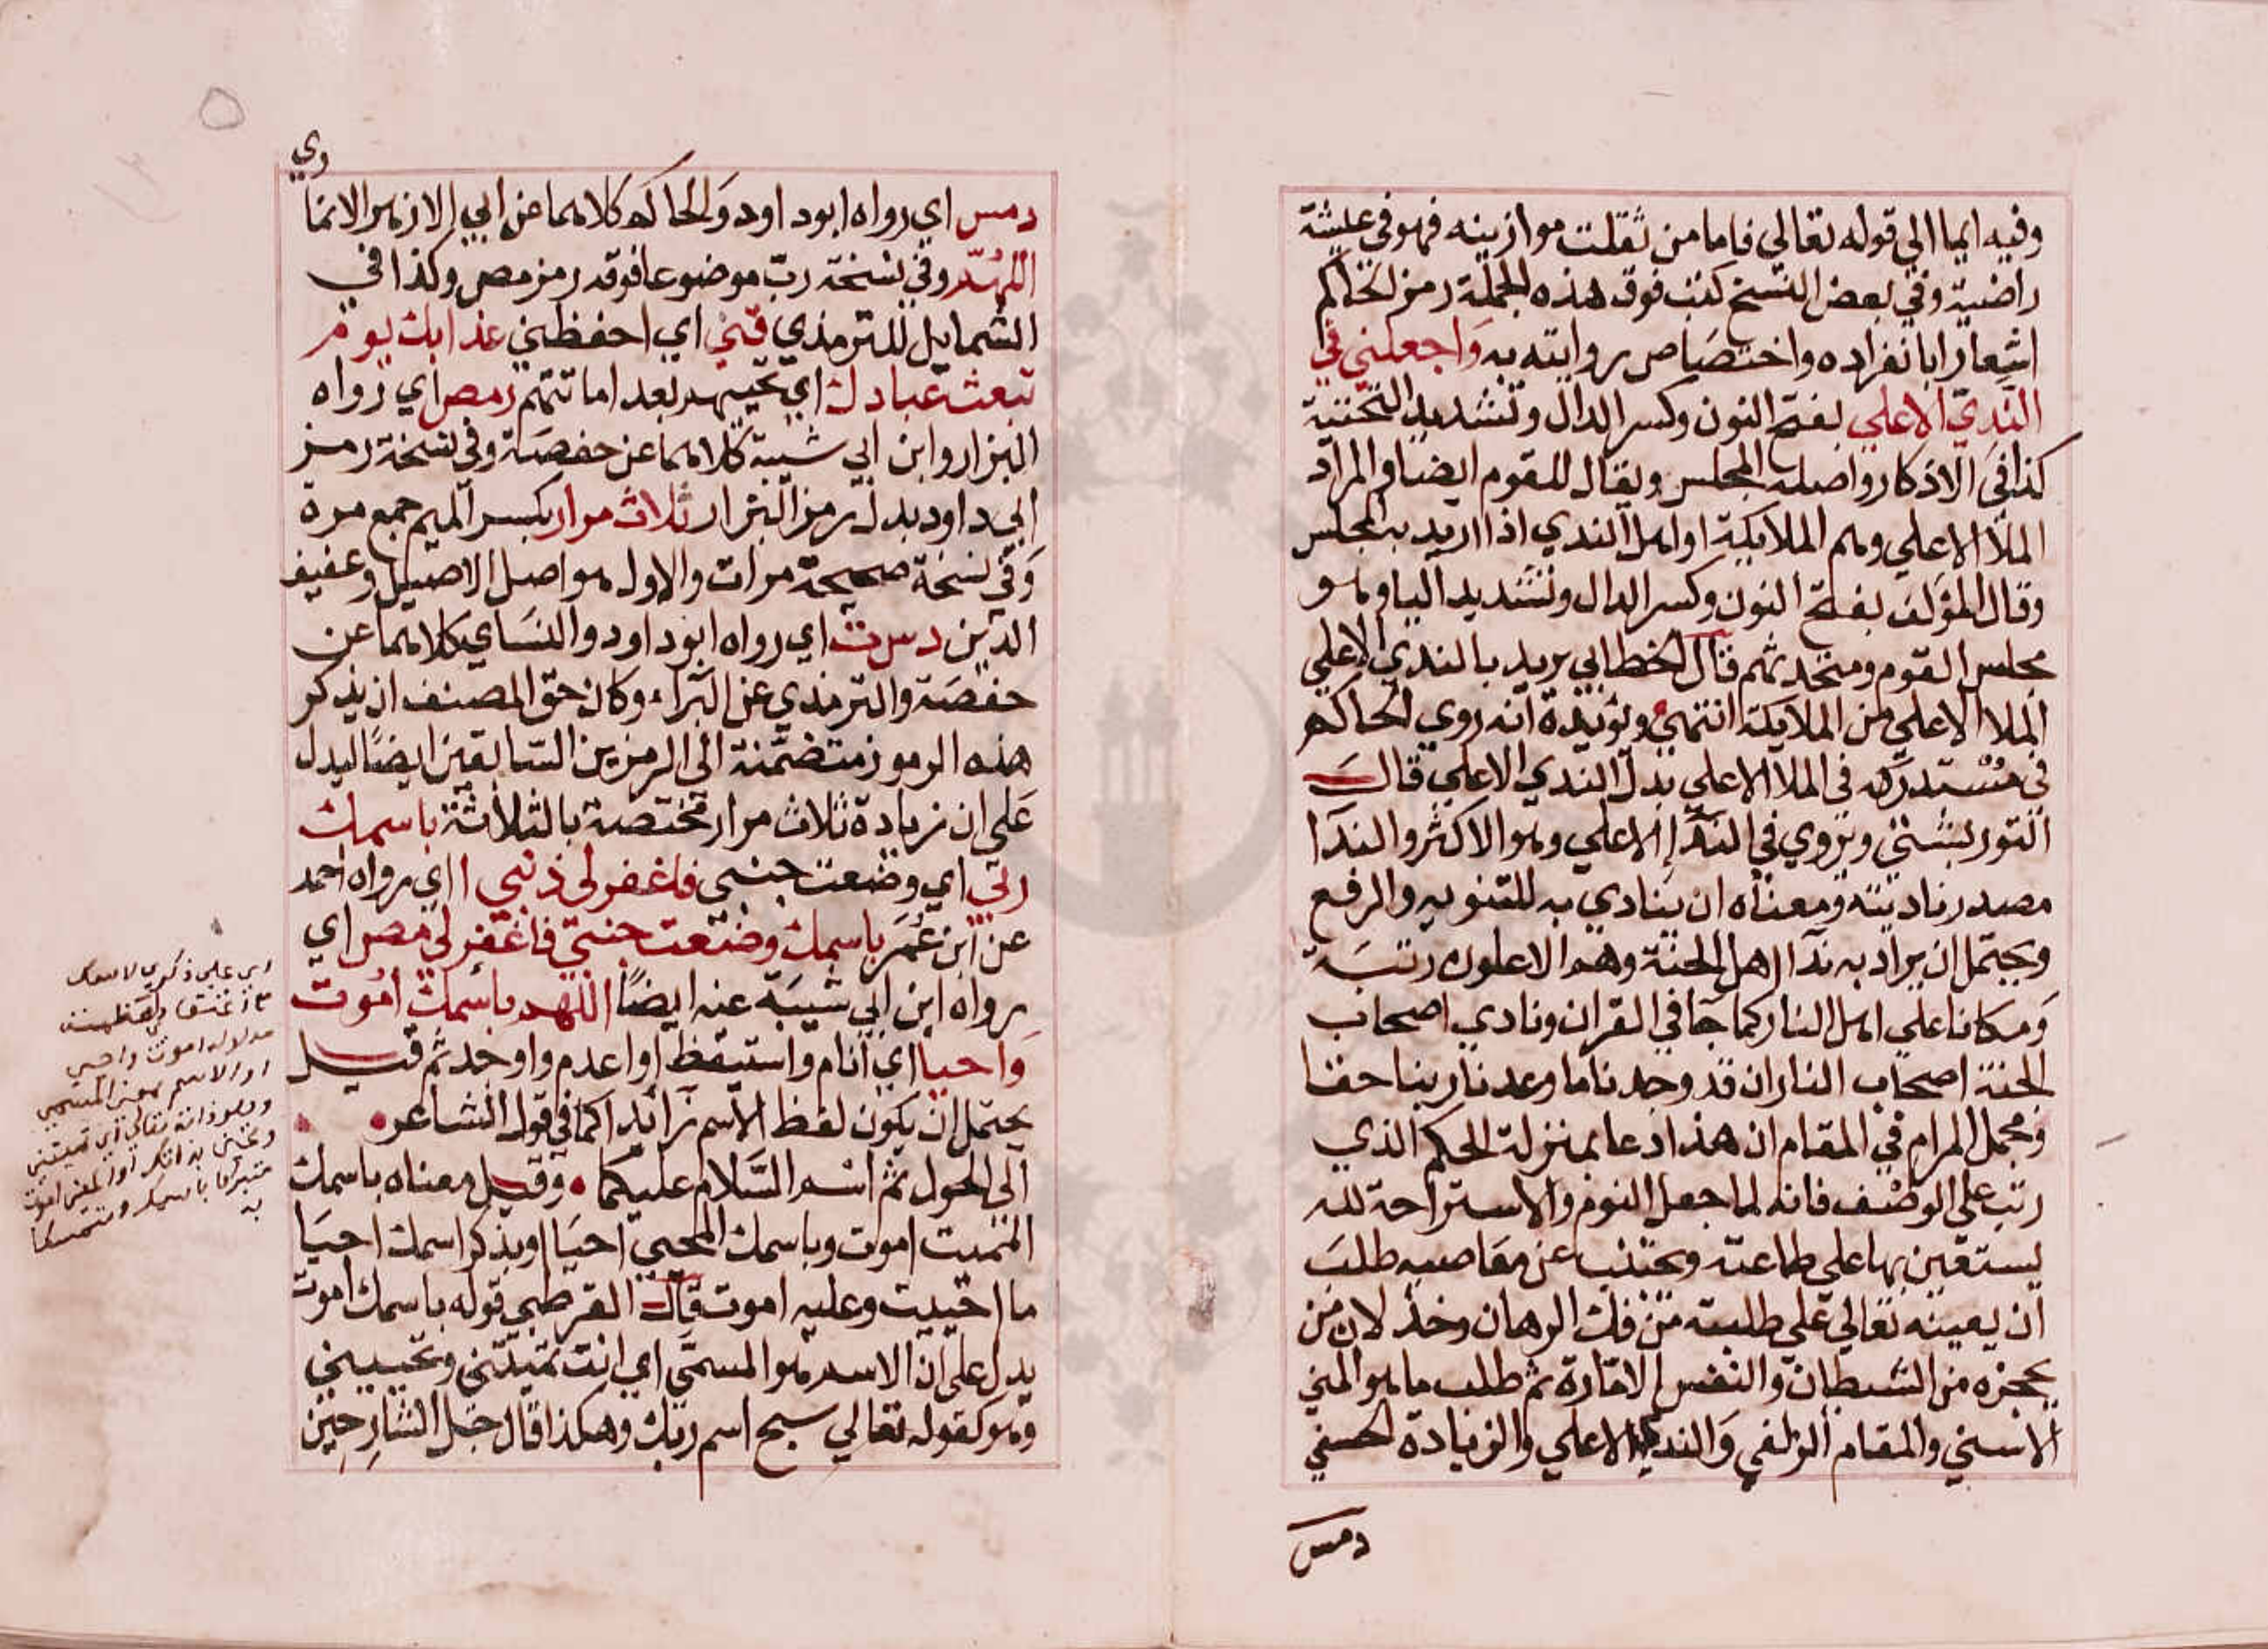 وفيه ايما الي قوله تعالي فاما من ثقلت موازينه فهو في عيشة
راضية وفي بعض النسخ كتب فوق هذه الجملة رمز الحاكم
اشعارا بانفراده واختصاص روايته به وَاجعلني في
الندِيّ الاعلي بفتح النون وكسر الدال وتشديد التحتية
كذا في الاذكار واصله المجلس ويقال للقوم ايضا والمراد
الملأ الاعلي وهم الملايكة او اهل الندي اذا اريد به المجلس
وقال المؤلف بفتح النون وكسر الدال وتشديد اليا وهو
مجلس القوم ومتحدثهم قال الخطابي يريد بالندي الاعلي
الملا الاعلي من الملايكة انتهي ويؤيده انه روي الحاكم
في مُسْتدركه في الملا الاعلي بدل الندي الاعلي قال
التوربشتي ويروي في الندَّا الاعلي وهو الاكثر والندَا
مصدر ناديته ومعناه ان ينادي به للتنويه والرفع
ويحتمل ان يراد به ندا اهل الجنة وهم الاعلون رتبَة
وَمكانا علي اهل النار كما جَا في القران ونادي اصحاب
الجنة اصحاب النار ان قد وجدنا ما وعدنا ربنا حقا
ومجمل المرام في المقام ان هذا دعا بمنزلة الحكم الذي
رتب علي الوصف فانه لما جعل النوم والاستراحة لله
يستعين بها علي طاعته ويجتنب عن معاصيه طلبَ
ان يعينه تعالي علي طلبته من فك الرهان وخذلان من
يحجزه من الشيطان والنفس الامّارة ثم طلب ما هو المني
الاسني والمقام الزلفي وَالندي الاعلي والزيادة الحسني
دمس
وي
دمس اي رواه ابود اود وَالحاكم كلاهما عن ابي الازهر الانما
اللهُمّ وفي نسخة ربّ موضوعا فوقه رمز مص وكذا في
الشمايل للترمذي قني اي احفظني عذابك يوم
تبعث عبادك اي تحييهم بعد اماتتهم رمص اي رواه
البزار وابن ابي شيبة كلاهما عن حفصَة وفي نسخة رمز
ابي داود بدل رمز البزار ثلاث مرار بكسر الميم جمع مرة
وَفي نسخة صحيحة مرات والاول هو اصل الاصيل وعفيف
الدين دس ت اي رواه ابود اود والنسَاي كلاهما عن
حفصَة والترمذي عن البَراء وكان حق المصنف ان يذكر
هذه الرموز متضمنة الي الرمزين السّابقين ايضًا ليدل
عَلي ان زيادة ثلاث مرار مختصة بالثلاثة باسمك
ربي اي وضعت جنبي فاغفر لي ذنبي ا اي رواه احمد
عن ابن عُمَر باسمك وضعت جنبي فاغفر لي مص اي
رواه ابن ابي شيبَة عنه ايضًا اللهم باسمك امُوت
وَاحيا اي انام واستيقظ او اعدم واوجد ثم قيل
يحتمل ان يكون لفظ الاسم زائدا كما في قول الشاعر
الي الحول ثم اسم السَّلام عليكما وقيل معناه باسمك
المميت اموت وباسمك المحيي احيَا او بذكر اسمك احيَا
ما احييت وعليه اموت قال القرطبي قوله باسمك اموت
يدل علي ان الاسم هو المسمّي اي انت تميتني وتحييني
وهو كقوله تعالي سبح اسم ربك وهكذا قال جل الشارحين
اي علي ذكري لاسمك
مدلوله اموت واحيي
او الاسم بمعني المسمي
وهو ذاته تعالي اي تميتني
متبركا باسمك ومتمسكا
به